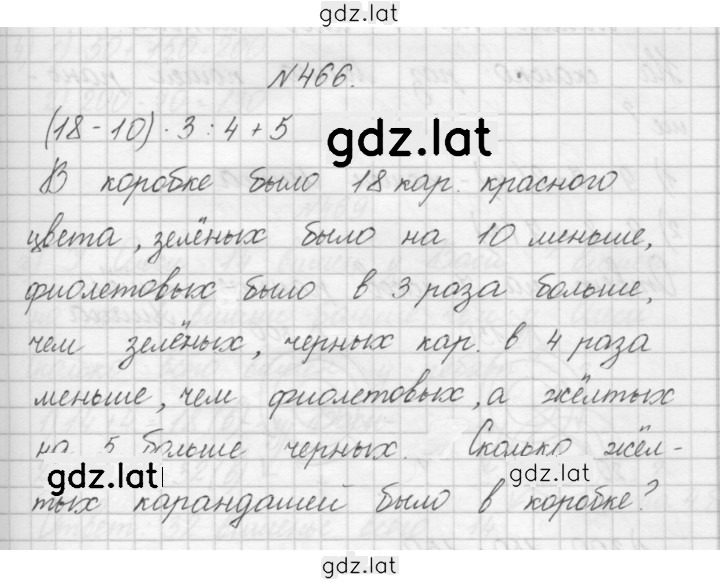 gdz.lat
№466.
(18-10)·3:4+5
gdz.lat
В коробке было 18 кар. красного
цвета, зелёных было на 10 меньше,
фиолетовых было в 3 раза больше,
чем зелёных, черных кар. в 4 раза
меньше, чем фиолетовых, а жёлтых
на 5 больше черных. Сколько жёл-
gdz.lat gdz.lat
тых карандашей было в коробке?
gdz.lat